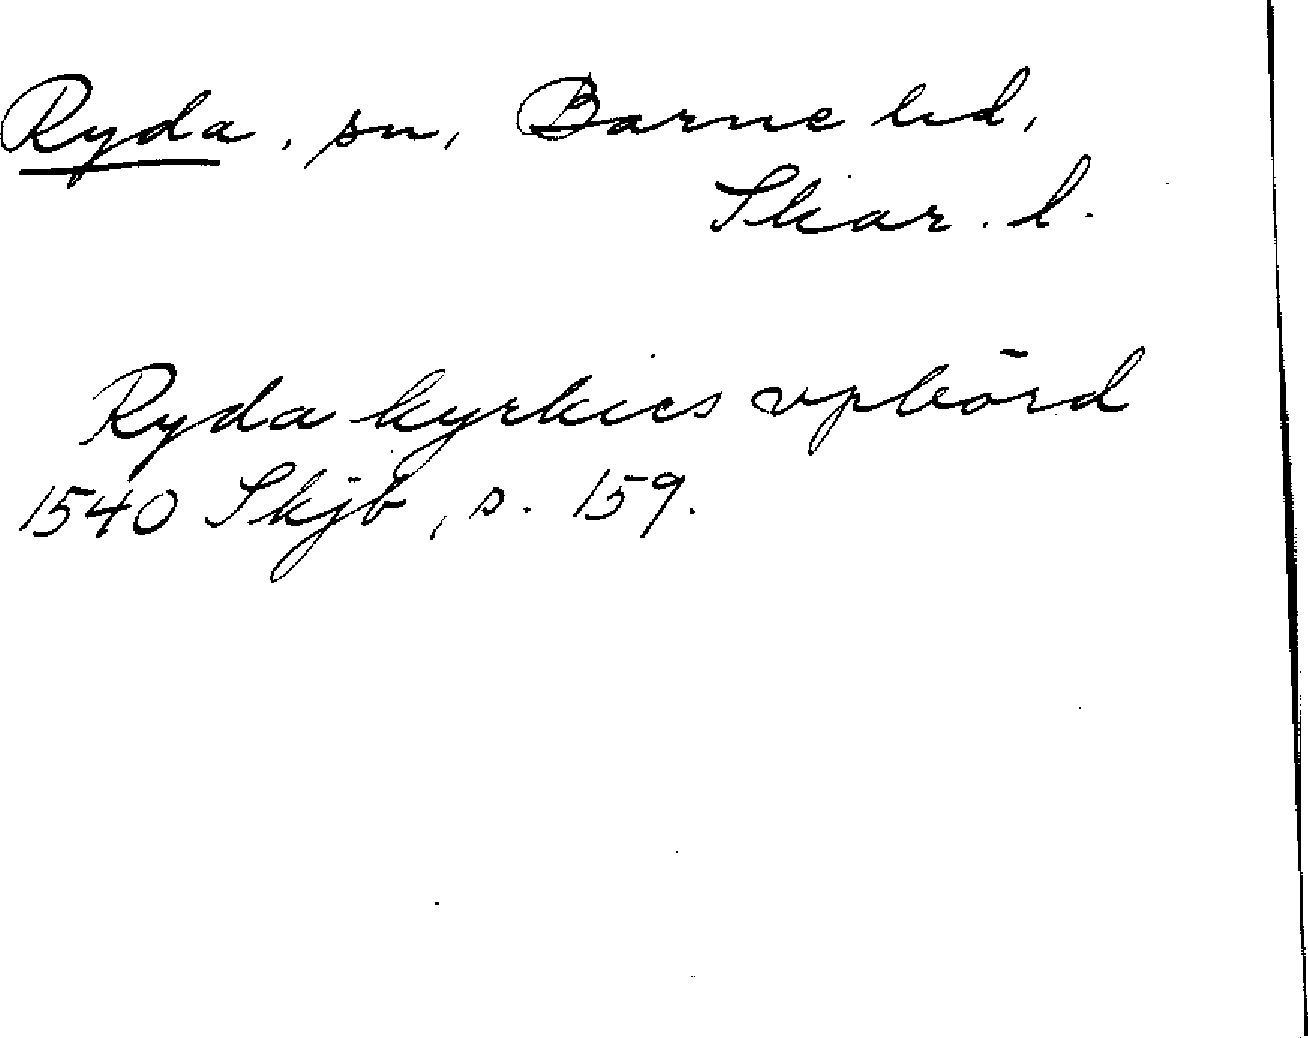 Ryda, sn, Barne hd,
Skar. l.
Ryda kyrkies vpbörd
1540 Skjb, s. 159.